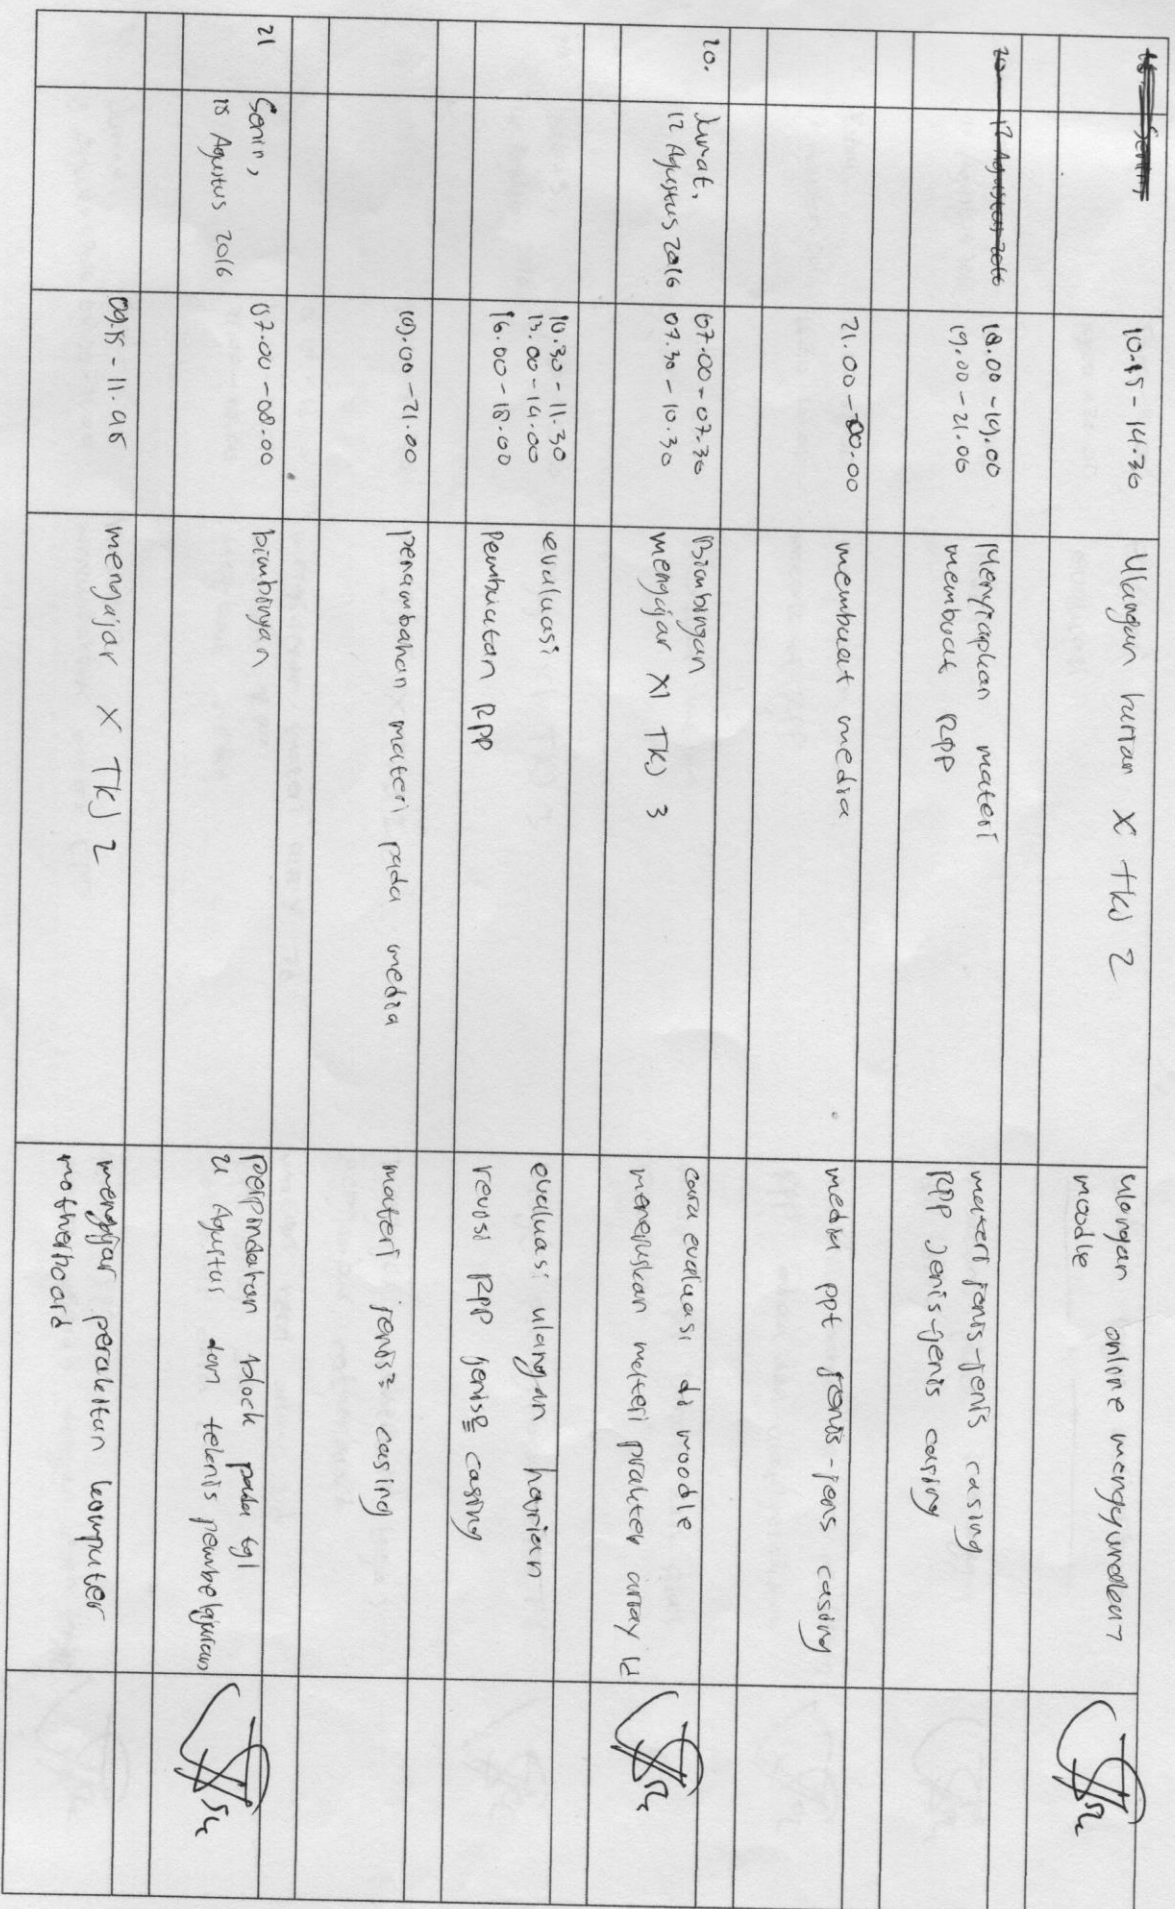 10.45 - 14.30
Ulangan harian X TKJ 2
Ulangan online menggunakan
moodle
18.00 - 19.00
19.00 - 21.00
Menyiapkan materi
membuat RPP
materi jenis-jenis casing
RPP jenis-jenis casing
21.00 - 00.00
membuat media
media ppt jenis-jenis casing
20.
Jumat,
12 Agustus 2016
07.00 - 07.30
07.30 - 10.30
Bimbingan
mengajar XI TKJ 3
cara evaluasi di moodle
meneruskan materi prakter array 1d
10.30 - 11.30
13.00 - 14.00
16.00 - 18.00
evaluasi
Pembuatan RPP
evaluasi ulangan harian
revisi RPP jenis2 casing
19.00 - 21.00
penambahan materi pada media
materi jenis2 casing
21
Senin,
15 Agustus 2016
07.00 - 08.00
bimbingan
perpindahan block pada tgl
Agustus dan teknis pembelajaran
09.15 - 11.45
mengajar X TKJ 2
mengajar perakitan komputer
motherboard